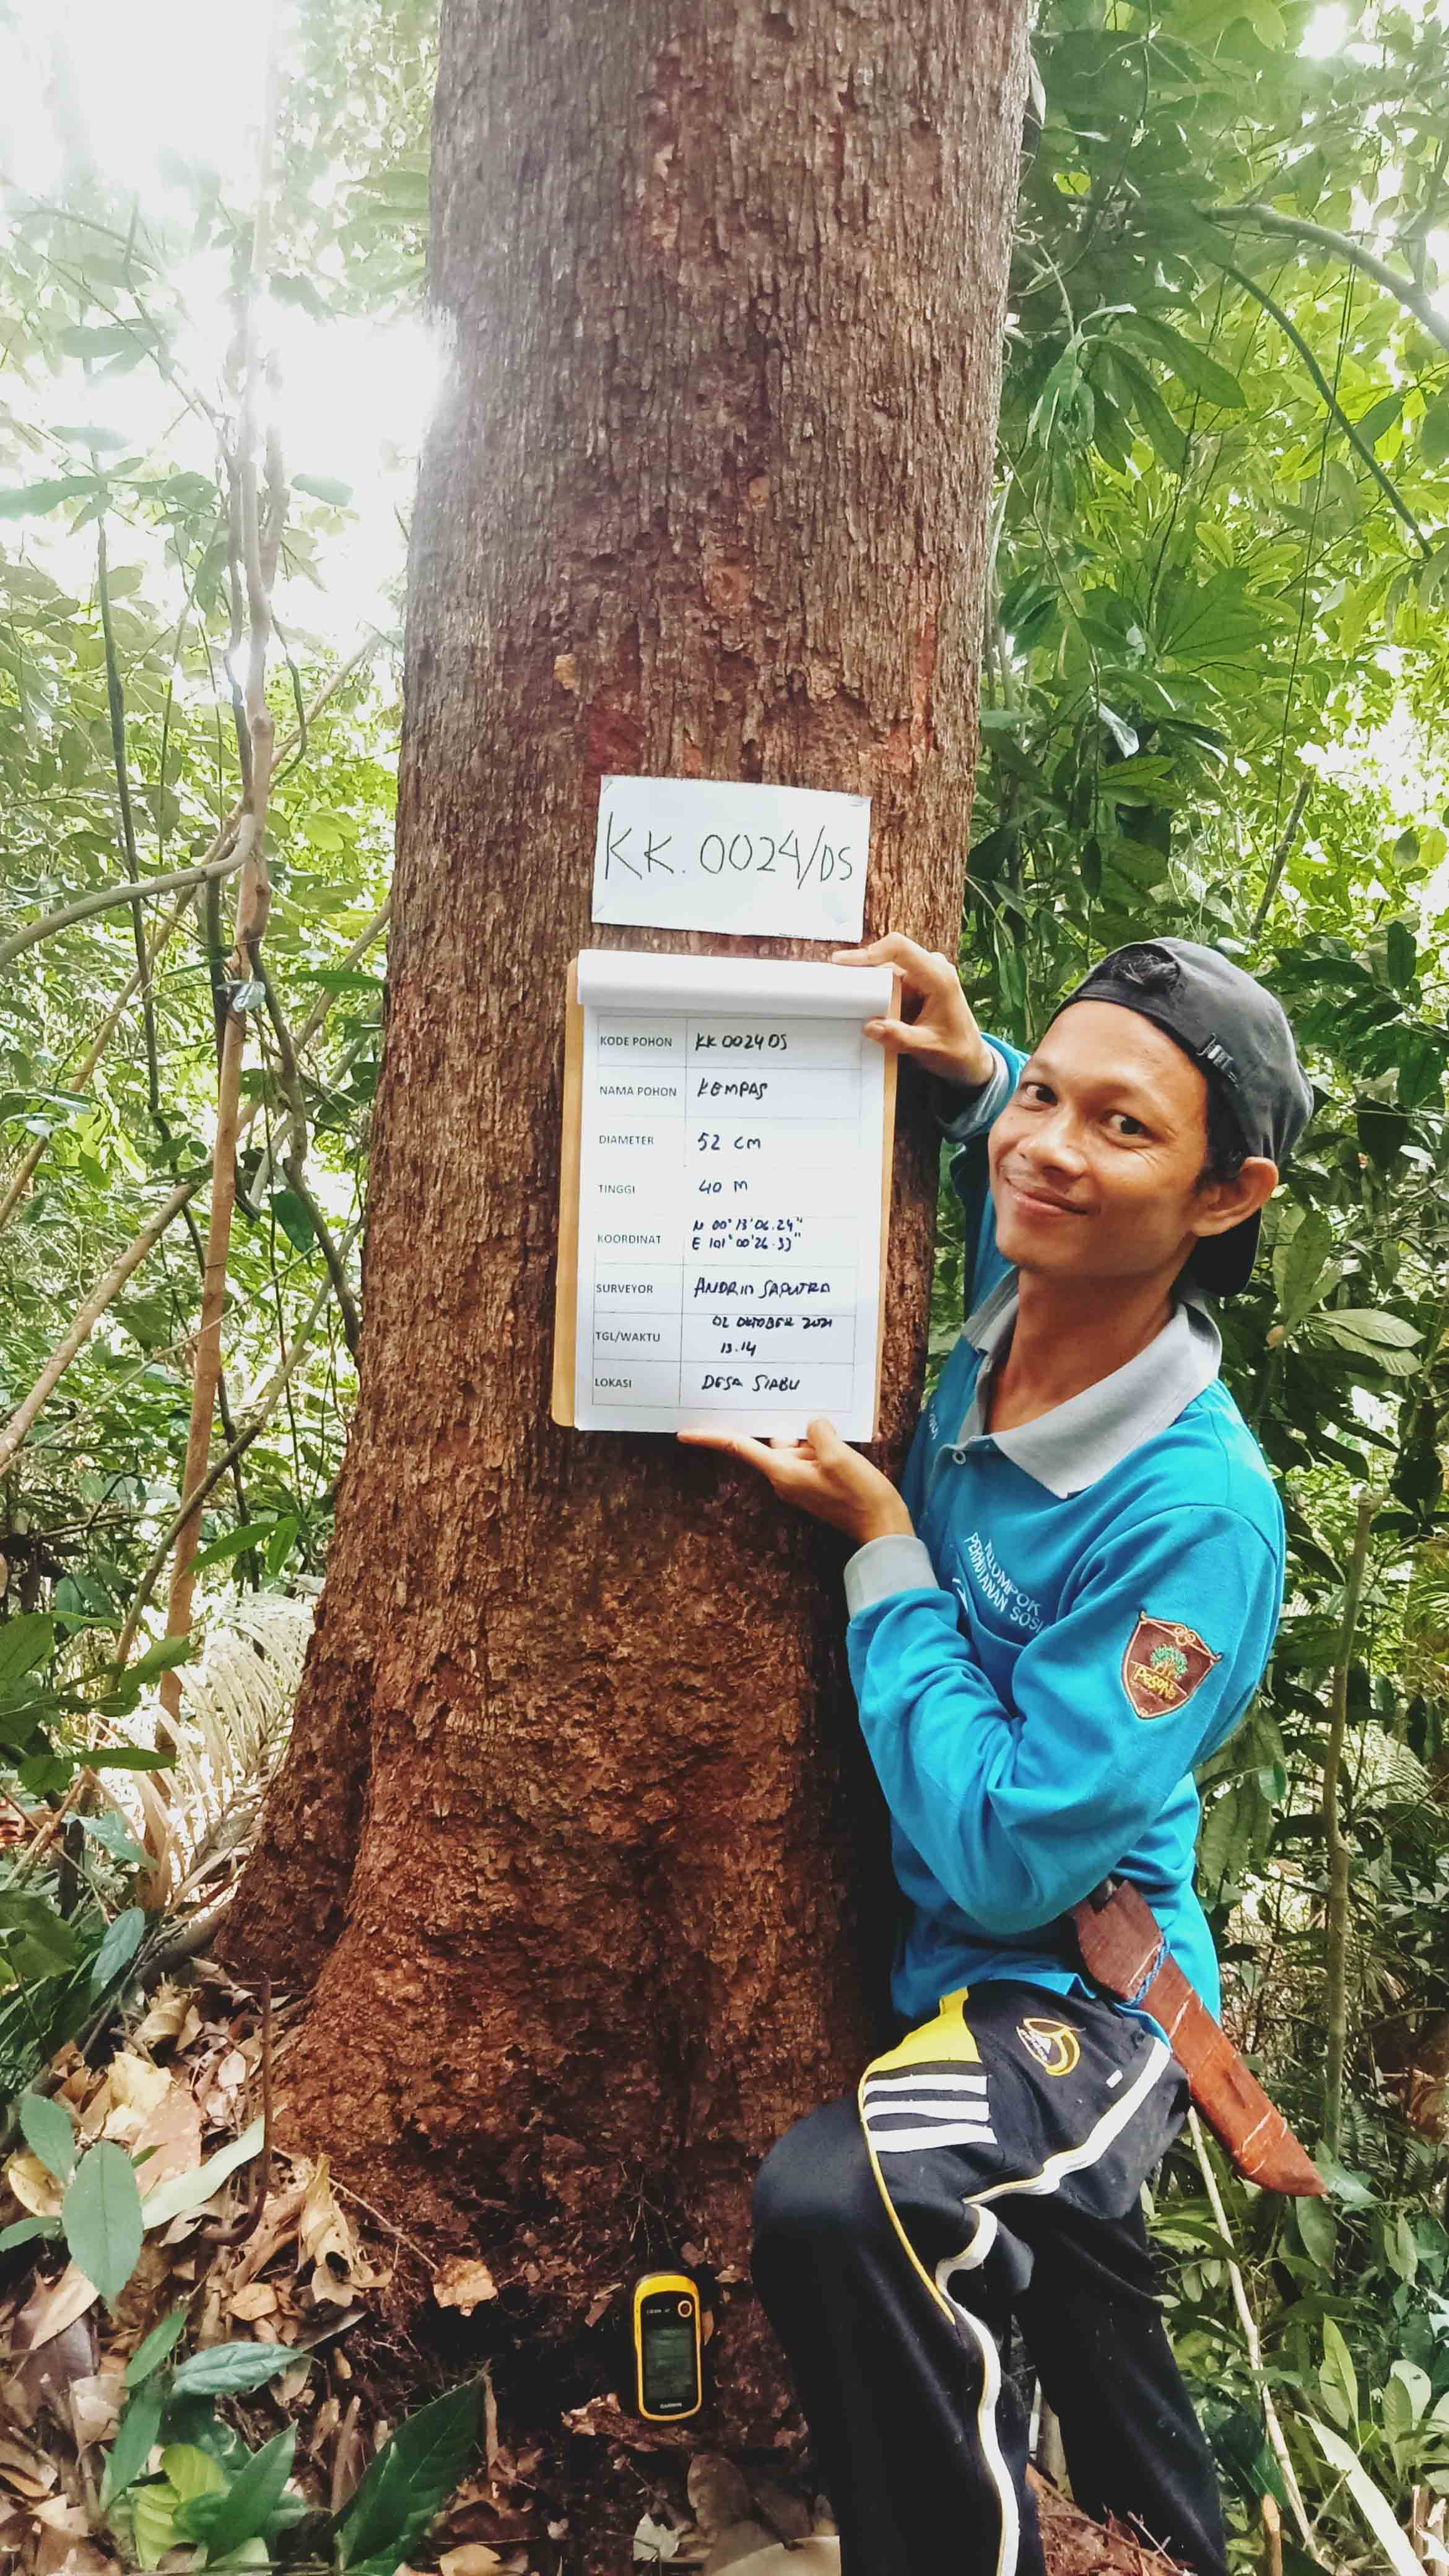 KK. 0024/DS
KODE POHON KK 0024 DS
NAMA POHON KEMPAS
DIAMETER 52 CM
TINGGI 40 M
KOORDINAT N 00° 13' 06.24"
E 101° 00' 26.33"
SURVEYOR SAPUTRA
TGL/WAKTU 02 OKTOBER 2021
13.14
LOKASI DESA SIABU
KELOMPOK
PERHUTANAN SOSI
GARMIN